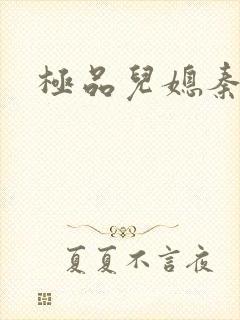 極品兒媳秦
夏夏不言夜